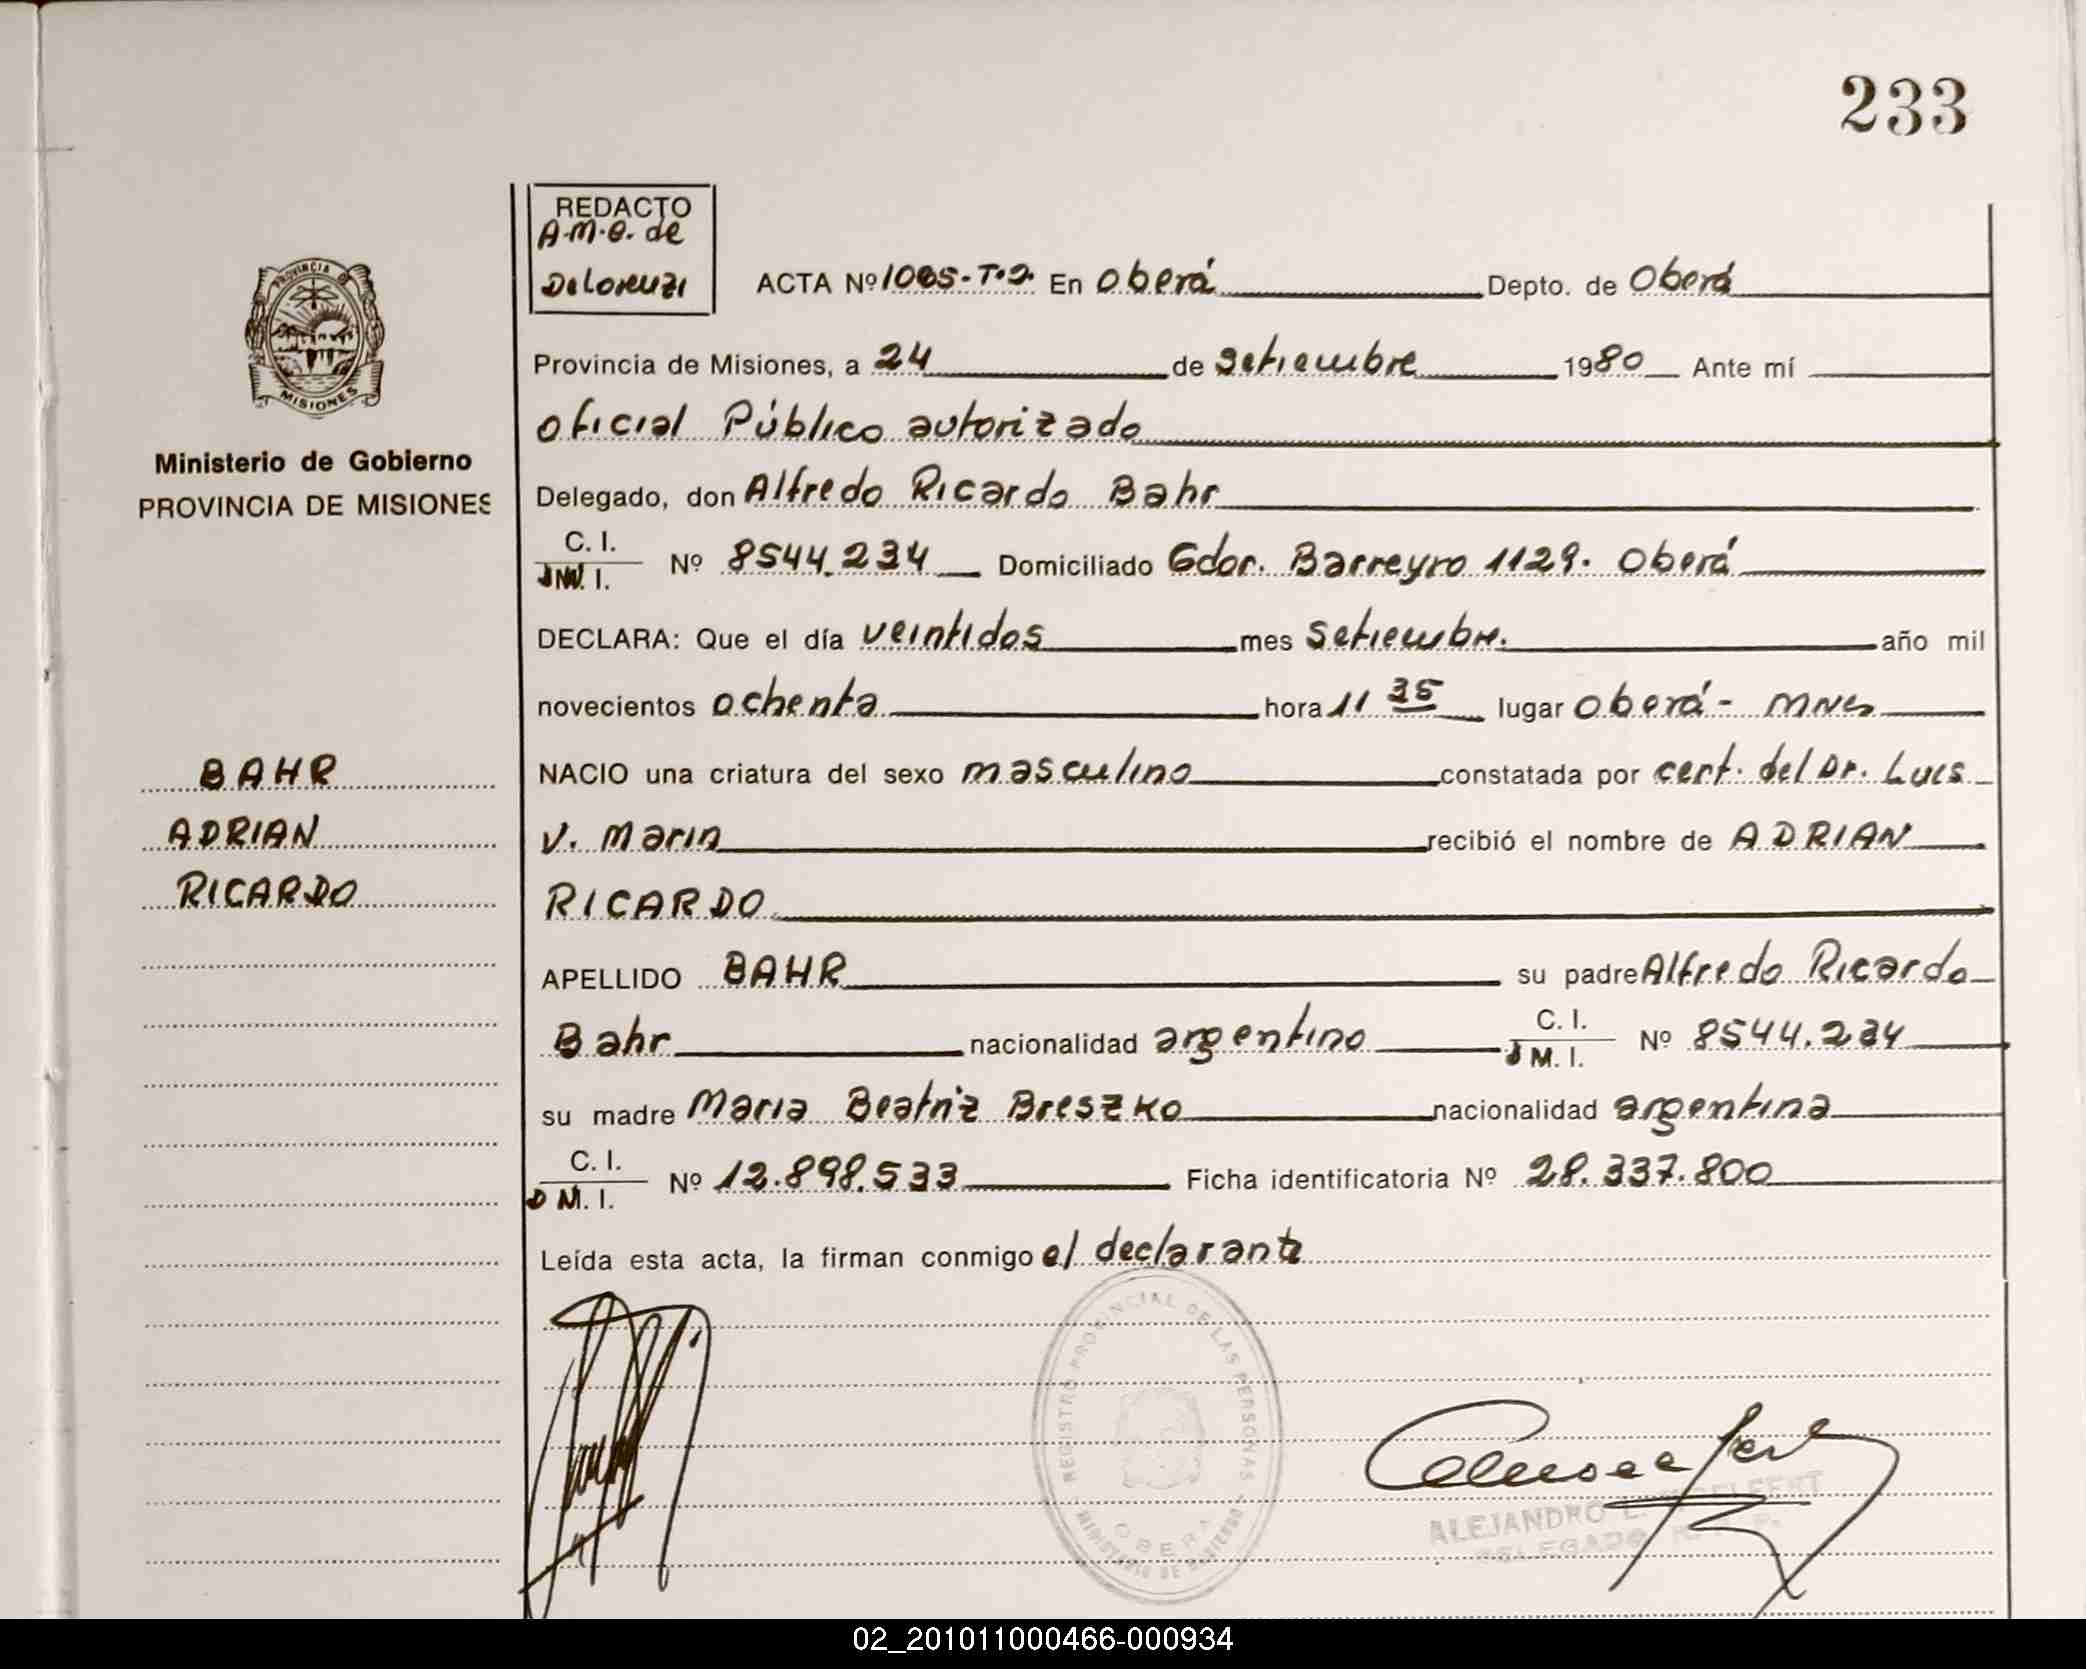 233
REDACTO
A.M.O. de
De Lorenzi
ACTA Nº 1005-T.2. En Oberá Depto. de Oberá
PROVINCIA DE
MISIONES
Provincia de Misiones, a 24 de setiembre 1980 Ante mí
oficial Público autorizado
Ministerio de Gobierno
PROVINCIA DE MISIONES
Delegado, don Alfredo Ricardo Bahr
C. I.
D M. I. Nº 8544.234 Domiciliado Gdor. Barreyro 1129. Oberá
DECLARA: Que el día veintidos mes setiembre. año mil
novecientos ochenta hora 11 35 lugar Oberá - Mnes
BAHR
ADRIAN
RICARDO
NACIO una criatura del sexo masculino constatada por cert. del Dr. Luis
V. Marin recibió el nombre de ADRIAN
RICARDO
APELLIDO BAHR su padre Alfredo Ricardo
Bahr nacionalidad argentino C. I. D M. I. Nº 8544.234
su madre Maria Beatriz Breszko nacionalidad argentina
C. I.
D M. I. Nº 12.898.533 Ficha identificatoria Nº 28.337.800
Leída esta acta, la firman conmigo el declarante
REGISTRO PROVINCIAL DE LAS PERSONAS
MINISTERIO DE GOBIERNO
OBERA
ALEJANDRO
DELEGADO
02_201011000466-000934